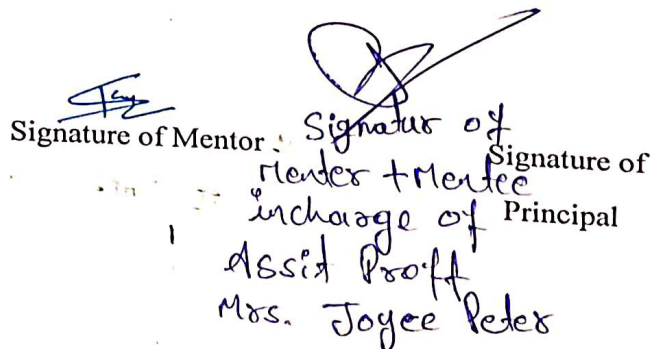 Signature of Mentor :
Signatur of
Menter + Mentee
incharge of
Assit Proff
Mrs. Joyee Peter
Signature of
Principal